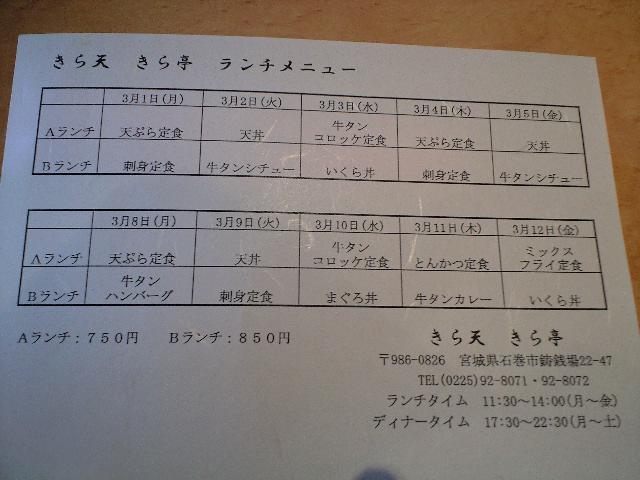 きら天　きら亭　ランチメニュー
3月1日(月) 3月2日(火) 3月3日(水) 3月4日(木) 3月5日(金)
Aランチ 天ぷら定食 天丼 牛タンコロッケ定食 天ぷら定食 天丼
Bランチ 刺身定食 牛タンシチュー いくら丼 刺身定食 牛タンシチュー
3月8日(月) 3月9日(火) 3月10日(水) 3月11日(木) 3月12日(金)
Aランチ 天ぷら定食 天丼 牛タンコロッケ定食 とんかつ定食 ミックスフライ定食
Bランチ 牛タンハンバーグ 刺身定食 まぐろ丼 牛タンカレー いくら丼
Aランチ：７５０円　Bランチ：８５０円
きら天　きら亭
〒986-0826　宮城県石巻市鋳銭場22-47
TEL(0225)92-8071・92-8072
ランチタイム　11:30～14:00(月～金)
ディナータイム　17:30～22:30(月～土)